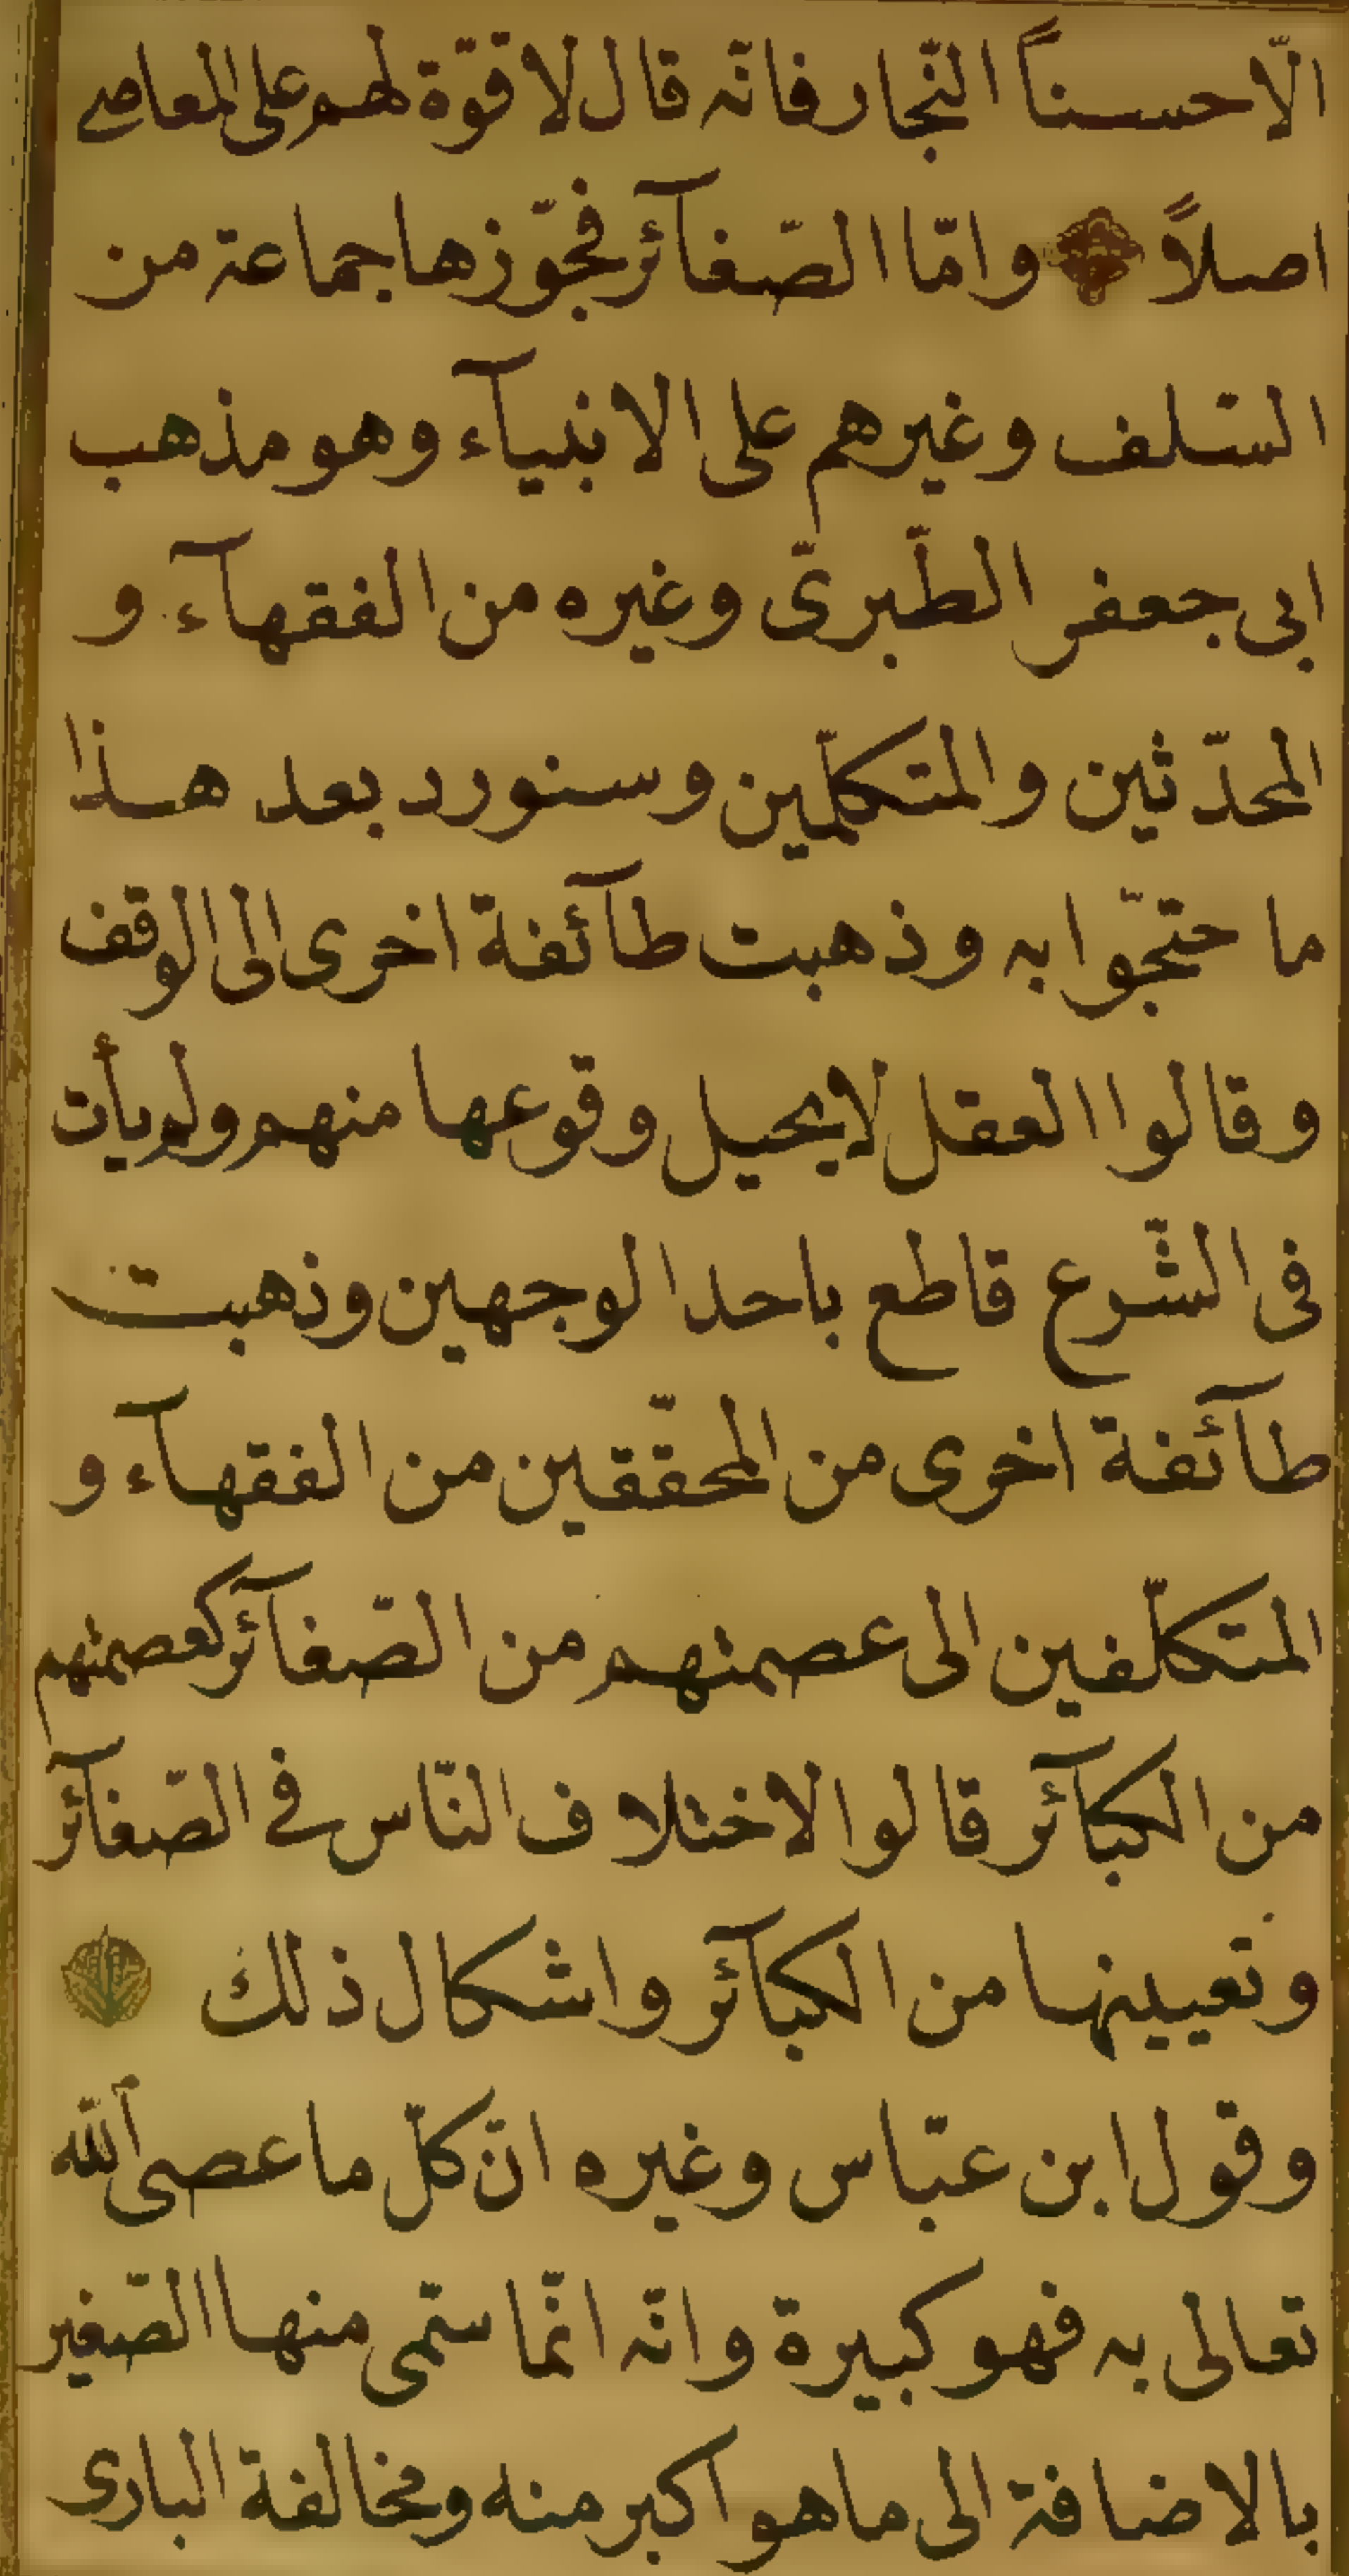 الّا حسناً النّجار فانّه قال لا قوّة لهم على المعاصى
اصلاً وامّا الصّغآئر فجوّزها جماعة من
السّلف وغيرهم على الانبيآء وهو مذهب
ابى جعفر الطّبرىّ وغيره من الفقهآء و
المحدّثين والمتكلّمين وسنورد بعد هذا
ما حتجّوا به وذهبت طآئفة اخرى الى الوقف
وقالوا العقل لا يحيل وقوعها منهم ولم يأت
فى الشّرع قاطع باحد الوجهين وذهبت
طآئفة اخرى من المحقّقين من الفقهآء و
المتكلّفين الى عصمتهم من الصّغآئر كعصمتهم
من الكبآئر قالوا لاختلاف النّاس فى الصّغآئر
وتعيينها من الكبآئر واشكال ذلك
وقول ابن عبّاس وغيره انّ كلّ ما عصى اللّه
تعالى به فهو كبيرة وانّه انّما سمّى منها الصّغير
بالاضافة الى ما هو اكبر منه ومخالفة البارى